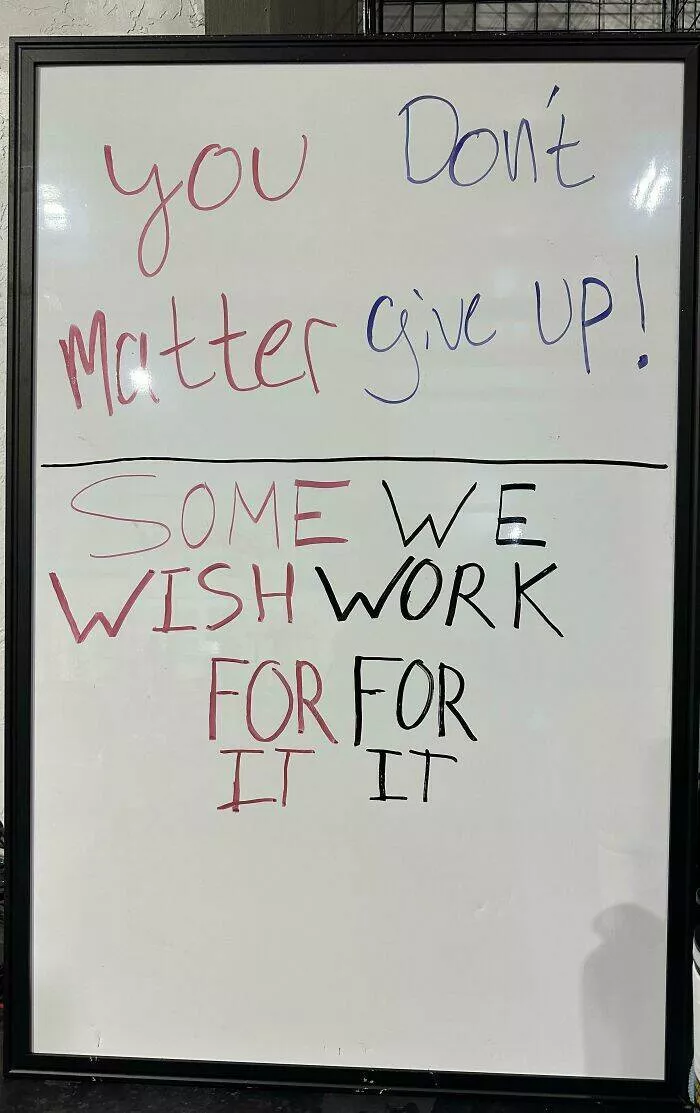 You
Matter
Don't
give UP!
SOME
WISH
FOR
IT
WE
WORK
FOR
IT